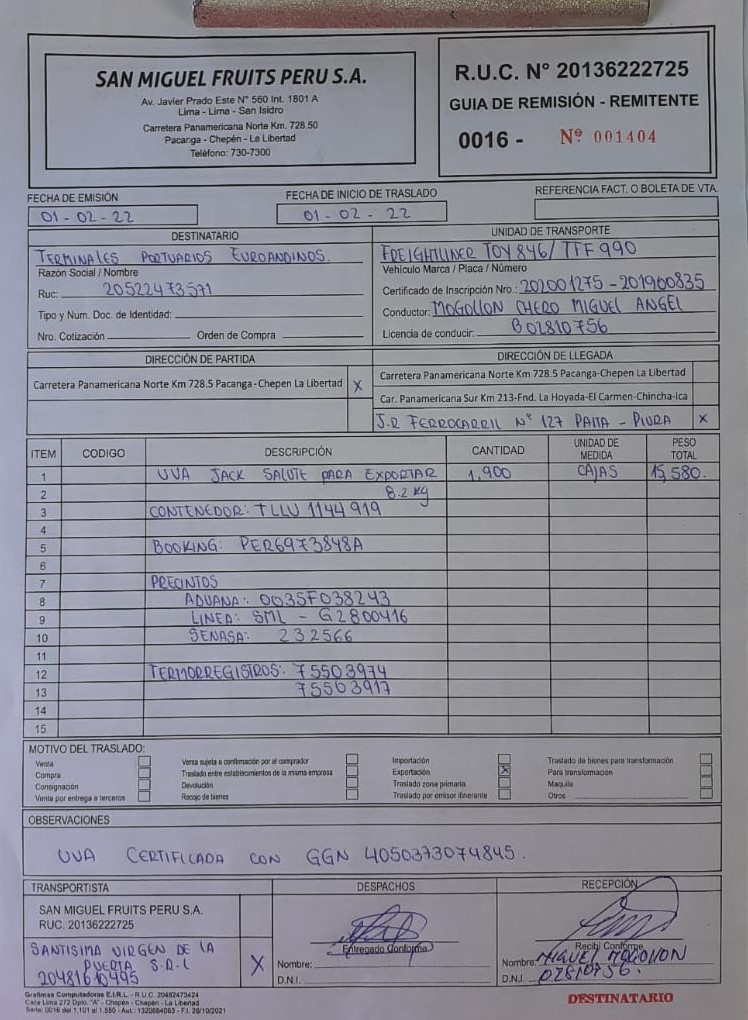 SAN MIGUEL FRUITS PERU S.A.
Av. Javier Prado Este N° 560 Int. 1801 A
Lima - Lima - San Isidro
Carretera Panamericana Norte Km. 728.50
Pacanga - Chepén - La Libertad
Teléfono: 730-7300
R.U.C. N° 20136222725
GUIA DE REMISIÓN - REMITENTE
0016 - Nº 001404
FECHA DE EMISIÓN
01-02-22
FECHA DE INICIO DE TRASLADO
01-02-22
REFERENCIA FACT. O BOLETA DE VTA.
DESTINATARIO
TERMINALES PORTUARIOS EUROANDINOS.
Razón Social / Nombre
Ruc: 20522473571
Tipo y Num. Doc. de Identidad:
Nro. Cotización Orden de Compra
UNIDAD DE TRANSPORTE
FREIGHTLINER TOY 846/ TFF 990
Vehículo Marca / Placa / Número
Certificado de Inscripción Nro.: 202001275 - 201900835
Conductor: MOGOLLON CHERO MIGUEL ANGEL
Licencia de conducir: B02810756
DIRECCIÓN DE PARTIDA
Carretera Panamericana Norte Km 728.5 Pacanga-Chepen La Libertad X
DIRECCIÓN DE LLEGADA
Carretera Panamericana Norte Km 728.5 Pacanga-Chepen La Libertad
Car. Panamericana Sur Km 213-Fnd. La Hoyada-El Carmen-Chincha-Ica
J.R FERROCARRIL Nº 127 PAITA - PIURA X
ITEM CODIGO DESCRIPCIÓN CANTIDAD UNIDAD DE MEDIDA PESO TOTAL
1 UVA JACK SALUTE PARA EXPORTAR 1,900 CAJAS 15,580.
2 8.2 Kg
3 CONTENEDOR: TLLU 1144919
4
5 BOOKING: PER6973848A
6
7 PRECINTOS
8 ADUANA: 0035F038243
9 LINEA: SML - G2800416
10 SENASA: 232566
11
12 TERMORREGISTROS: 75503974
13 75503917
14
15
MOTIVO DEL TRASLADO:
Venta
Compra
Consignación
Venta por entrega a terceros
Venta sujeta a confirmación por el comprador
Traslado entre establecimientos de la misma empresa
Devolución
Recojo de bienes
Importación
Exportación X
Traslado zona primaria
Traslado por emisor itinerante
Traslado de bienes para transformación
Para transformación
Maquila
Otros
OBSERVACIONES
UVA CERTIFICADA CON GGN 4050373074845.
TRANSPORTISTA
SAN MIGUEL FRUITS PERU S.A.
RUC. 20136222725
SANTISIMA VIRGEN DE LA
PUERTA S.R.L X
DESPACHOS
Entregado Conforme
Nombre:
D.N.I.
RECEPCIÓN
Recibí Conforme
Nombre: MIGUEL MOGOLLON
D.N.I. 02810756.
Grafimas Computadoras E.I.R.L. - R.U.C. 20482473424
Calle Lima 272 Dpto. "A" - Chepén - Chepén - La Libertad
Serie: 0016 del 1,101 al 1,550 - Aut.: 1320864083 - F.I. 28/10/2021
DESTINATARIO